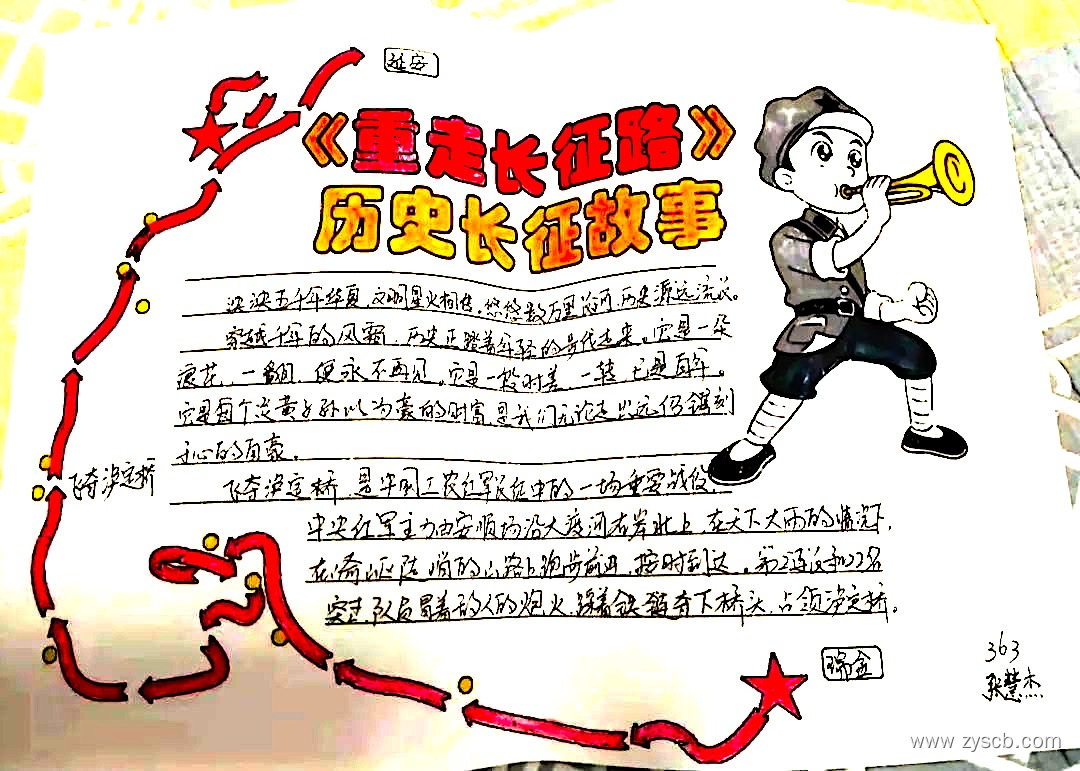 延安
《重走长征路》
历史长征故事
泱泱五千年华夏,文明星火相传,悠悠数万里山河,历史源远流长。
穿越千年的风霜,历史正踏着年轻的步伐走来。它是一朵
浪花,一翻,便永不再见。它是一段时差,一转,已是百年。
它是每个炎黄子孙以为豪的财富,是我们无论走出多远仍镌刻
于心的自豪。
飞夺泸定桥
飞夺泸定桥,是中国工农红军长征中的一场重要战役,
中央红军主力由安顺场沿大渡河右岸北上,在天下大雨的情况下,
在崎岖陡峭的山路上跑步前进,按时到达。第2连连长和22名
突击队员冒着敌人的炮火,踩着铁链夺下桥头,占领泸定桥。
瑞金
363
张慧杰
www.zyscb.com